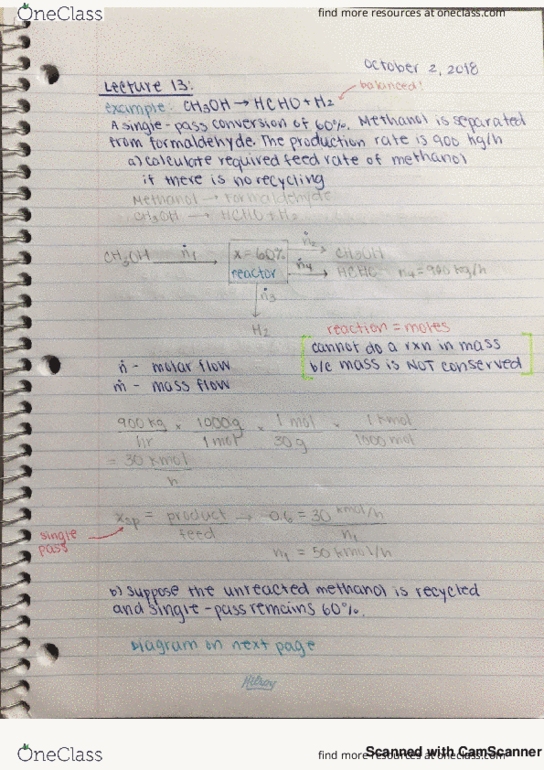 OneClass
find more resources at oneclass.com
October 2, 2018
Lecture 13:
balanced!
example: CH₃OH → HCHO + H₂
A single-pass conversion of 60%. Methanol is separated
from formaldehyde. The production rate is 900 kg/h
a) calculate required feed rate of methanol
if there is no recycling
Methanol → Formaldehyde
CH₃OH → HCHO + H₂
CH₃OH ṅ₁ → x = 60% ṅ₂ → CH₃OH
reactor ṅ₄ → HCHO n₄ = 900 kg/h
ṅ₃
H₂
reaction = moles
cannot do a rxn in mass
b/c mass is NOT conserved
ṅ - molar flow
ṁ - mass flow
900 kg/hr × 1000g/1mol × 1 mol/30 g × 1 kmol/1000 mol
= 30 kmol/h
single pass
xsp = product/feed → 0.6 = 30 kmol/h / n₁
n₁ = 50 kmol/h
b) suppose the unreacted methanol is recycled
and single-pass remains 60%.
Diagram on next page
Hilroy
OneClass
find more resources at oneclass.com
Scanned with CamScanner